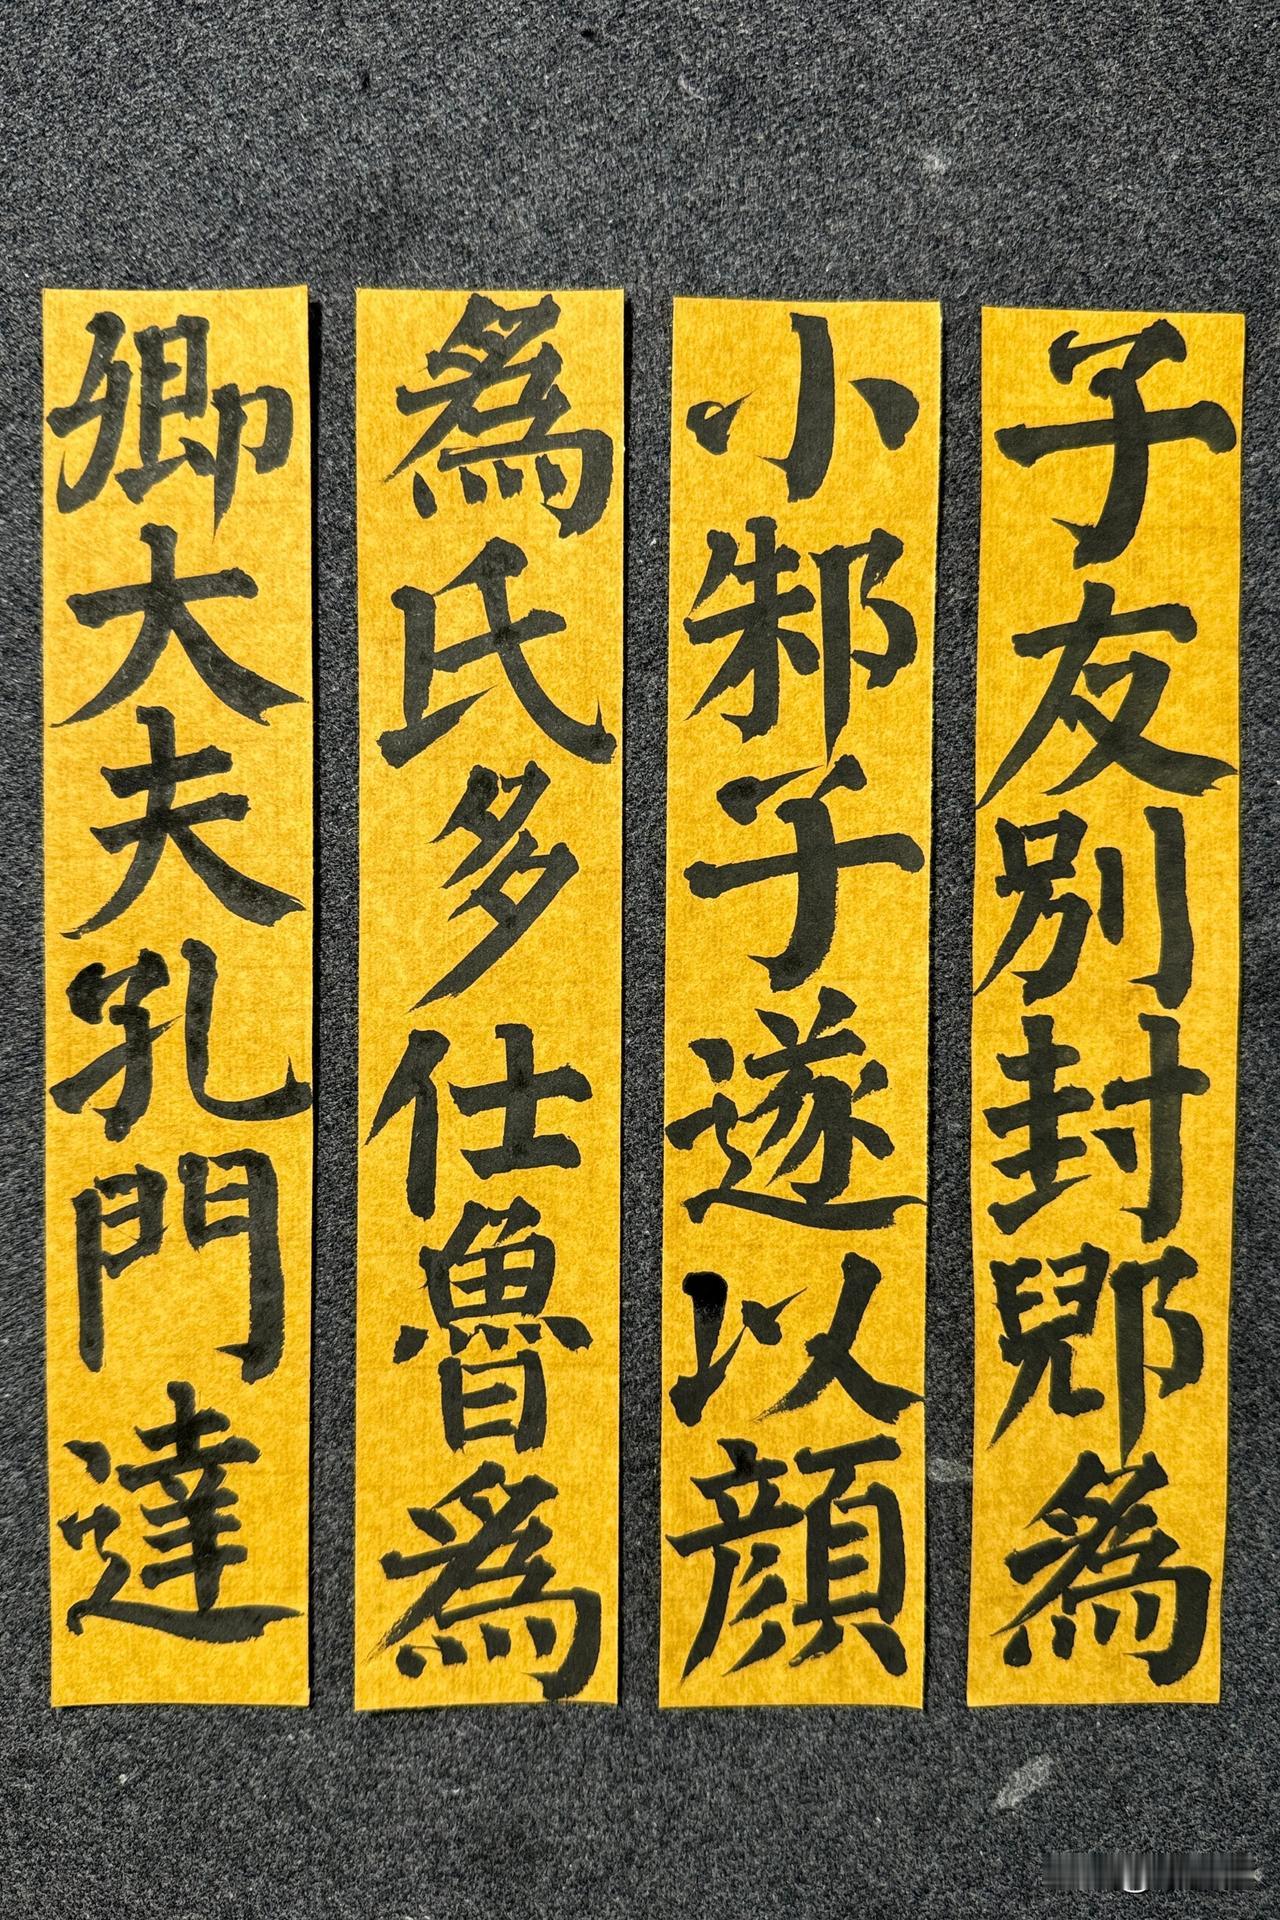 子友別封郳為
小邾子遂以顔
為氏多仕魯為
卿大夫孔門達